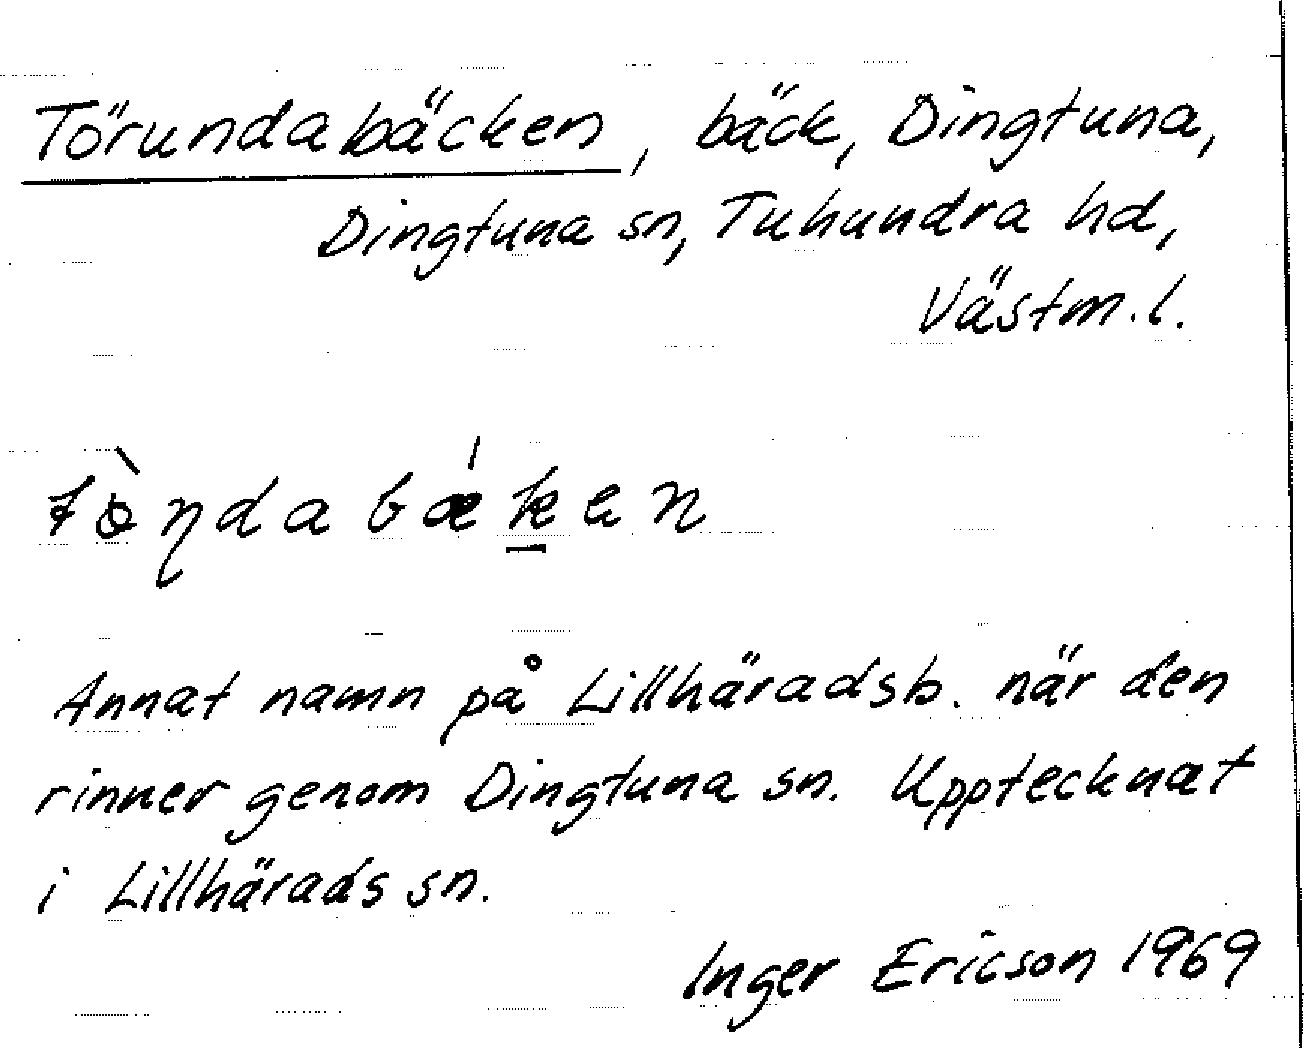 Törundabäcken, bäck, Dingtuna,
Dingtuna sn, Tuhundra hd,
Västm.l.
tò̵ɳdabǽken
Annat namn på Lillhäradsb. när den
rinner genom Dingtuna sn. Upptecknat
i Lillhärads sn.
Inger Ericson 1969